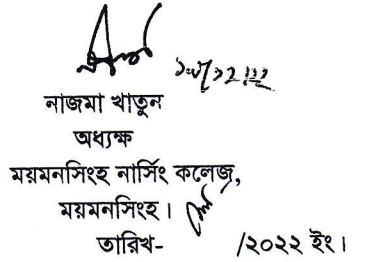 নাজমা খাতুন
অধ্যক্ষ
ময়মনসিংহ নার্সিং কলেজ,
ময়মনসিংহ।
তারিখ- /২০২২ ইং।